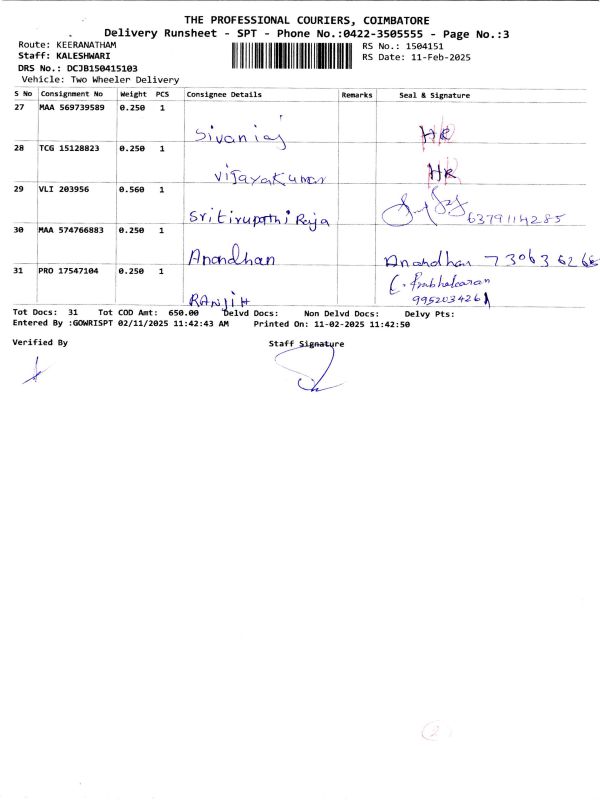 THE PROFESSIONAL COURIERS, COIMBATORE
Delivery Runsheet - SPT - Phone No.:0422-3505555 - Page No.:3
Route: KEERANATHAM
RS No.: 1504151
Staff: KALESHWARI
RS Date: 11-Feb-2025
DRS No.: DCJB150415103
Vehicle: Two Wheeler Delivery
S No Consignment No Weight PCS Consignee Details Remarks Seal & Signature
27 MAA 569739589 0.250 1
Sivaniaj HR
28 TCG 15128823 0.250 1
Vijayakumar HR
29 VLI 203956 0.560 1
Sritirupathi Raja 6379114285
30 MAA 574766883 0.250 1
Anandhan Anandhan 730636266
31 PRO 17547104 0.250 1
C. Prabhakaran
RANJIH 9952034261
Tot Docs: 31 Tot COD Amt: 650.00 Delvd Docs: Non Delvd Docs: Delvy Pts:
Entered By :GOWRISPT 02/11/2025 11:42:43 AM Printed On: 11-02-2025 11:42:50
Verified By Staff Signature